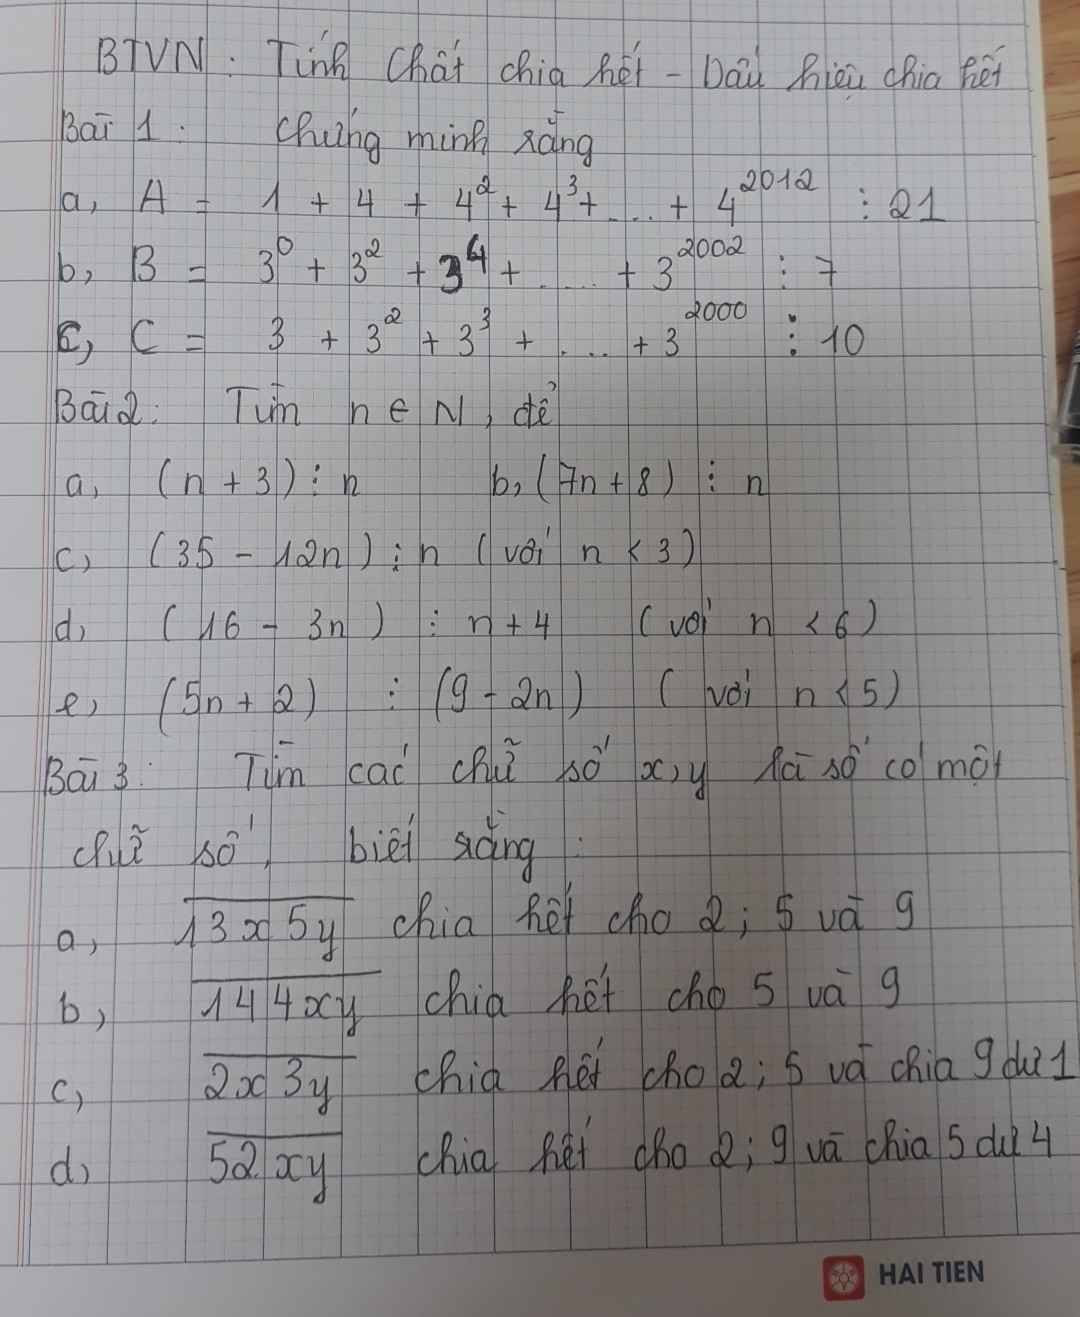 BTVN: Tính chất chia hết - Dấu hiệu chia hết
Bài 1: Chứng minh rằng
a, A = 1 + 4 + 4² + 4³ + ... + 4²⁰¹² ⋮ 21
b, B = 3⁰ + 3² + 3⁴ + ..... + 3²⁰⁰² ⋮ 7
c, C = 3 + 3² + 3³ + .... + 3²⁰⁰⁰ ⋮ 10
Bài 2: Tìm n ∈ N, để
a, (n + 3) ⋮ n b, (7n + 8) ⋮ n
c, (35 - 12n) ⋮ n (với n < 3)
d, (16 - 3n) ⋮ n + 4 (với n < 6)
e, (5n + 2) ⋮ (9 - 2n) (với n < 5)
Bài 3: Tìm các chữ số x, y là số có một
chữ số, biết rằng:
a, 1̅3̅x̅5̅y̅ chia hết cho 2; 5 và 9
b, 1̅4̅4̅x̅y̅ chia hết cho 5 và 9
c, 2̅x̅3̅y̅ chia hết cho 2; 5 và chia 9 dư 1
d, 5̅2̅x̅y̅ chia hết cho 2; 9 và chia 5 dư 4
HAI TIEN